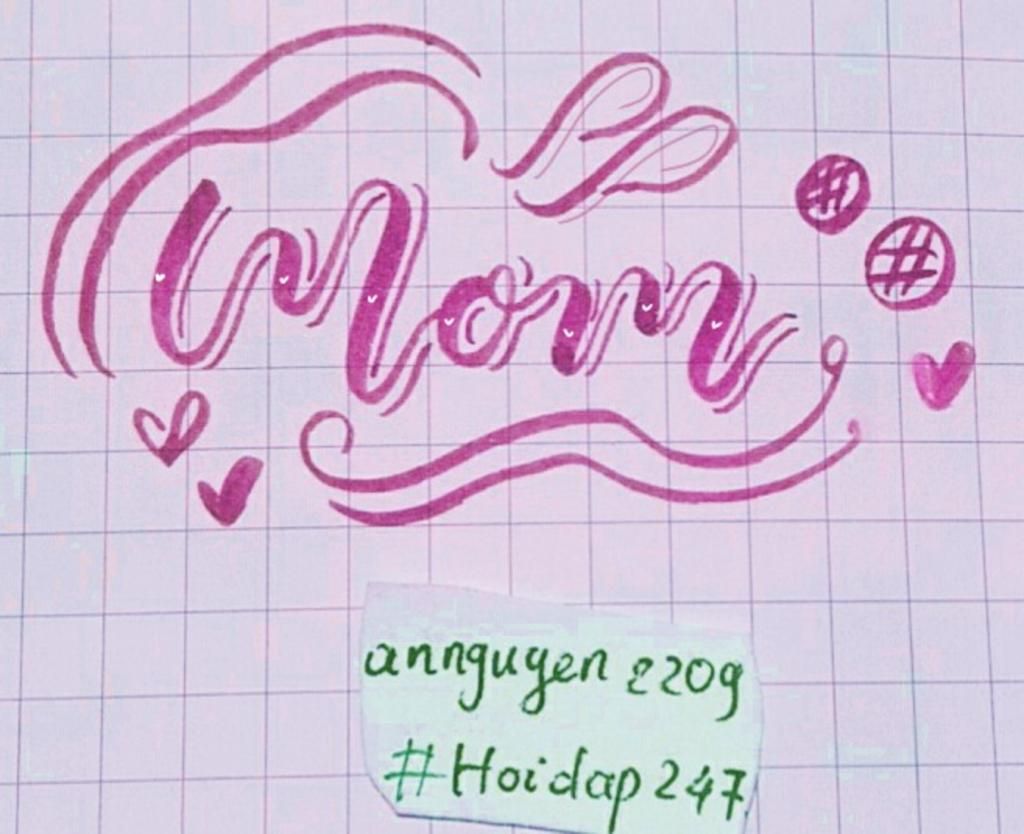 Mom
#
#
annguyen 2209
#Hoidap247